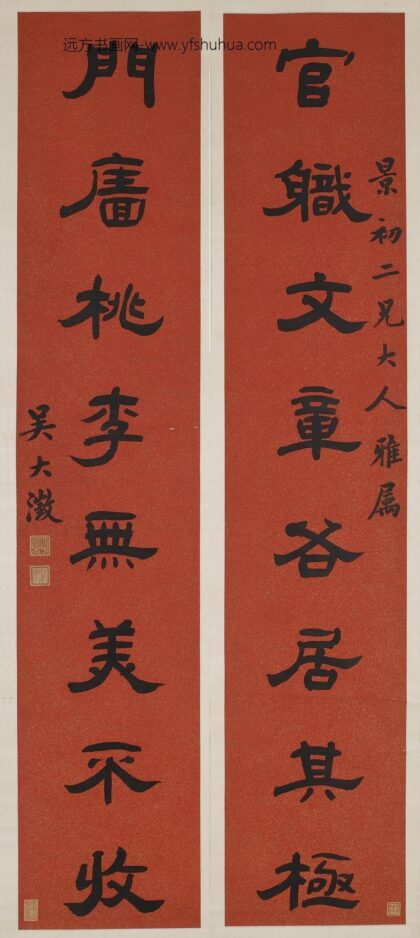 远方书画网-www.yfshuhua.com
景初二兄大人雅属
官軄文章各居其極
門廧桃李無美不收
吳大澂